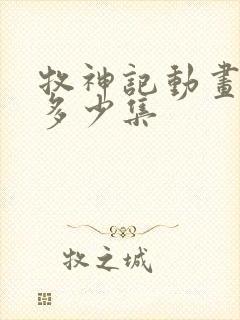 牧神記動畫
多少集
牧之城